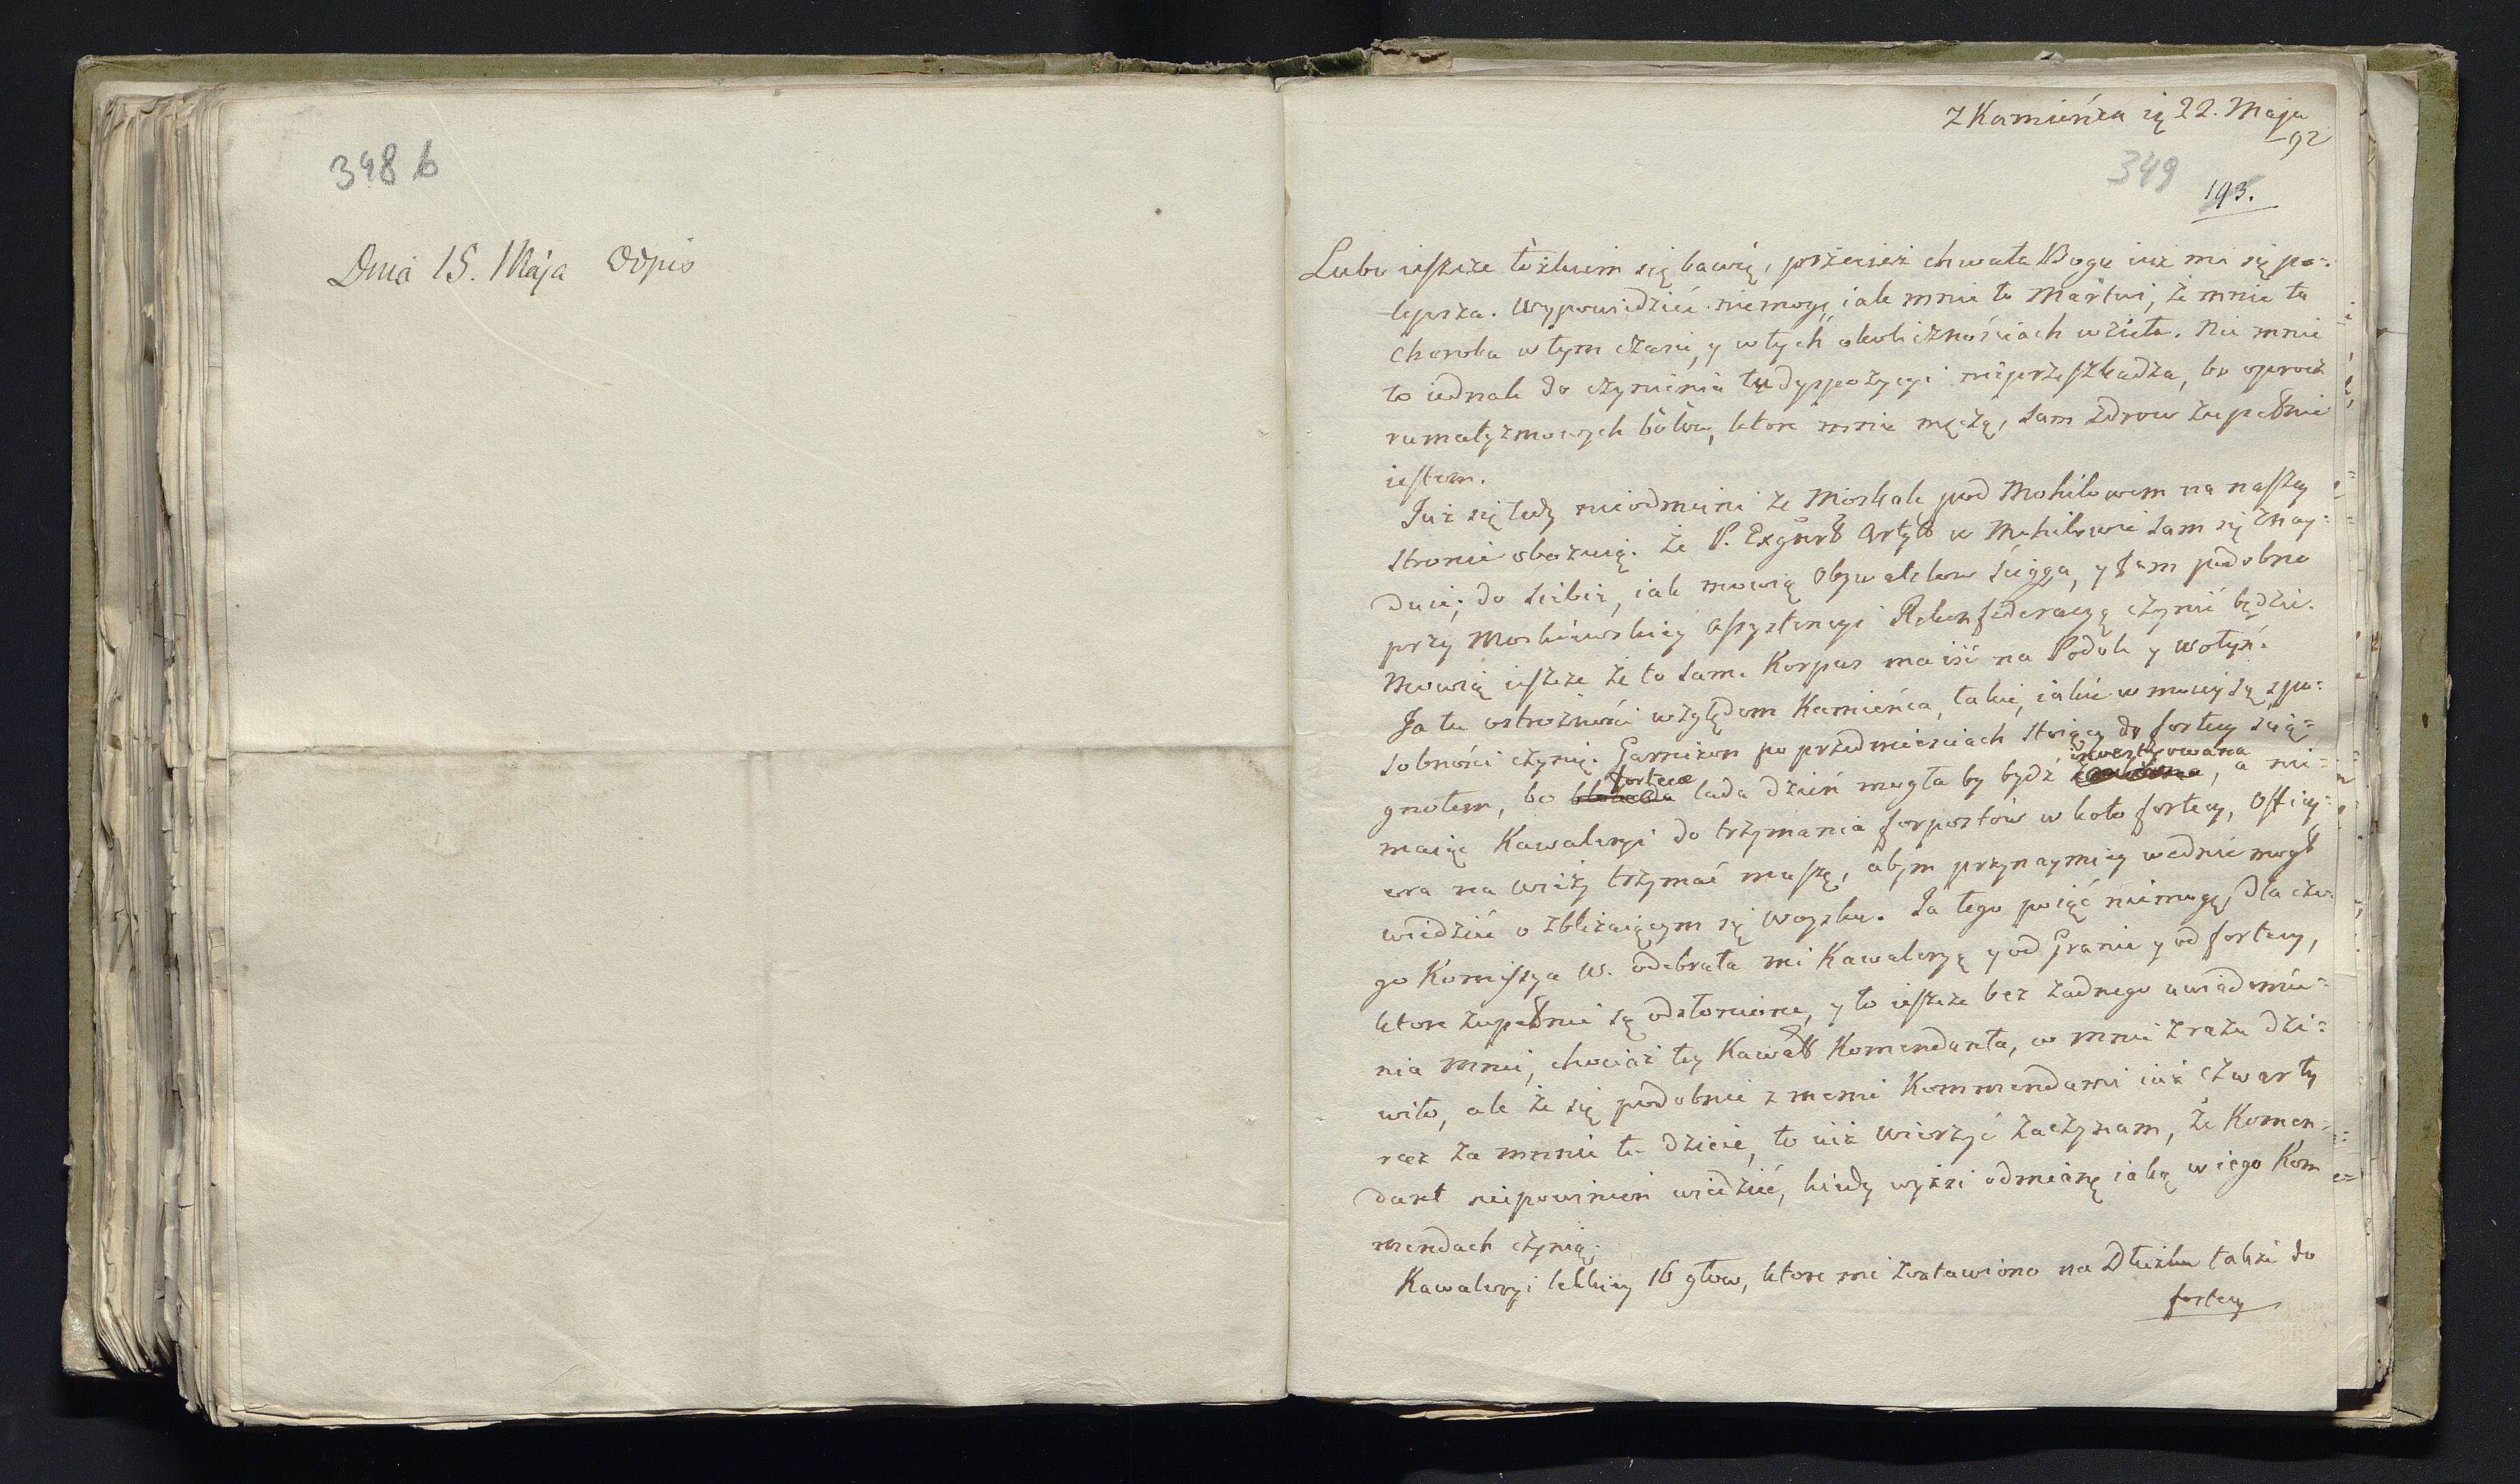 348 b
Dnia 15. Maja Odpis
Z Kamieńca 22. Maja
92
349
193.
Lubo ieszcze łożkiem się bawię, przecież chwała Bogu iuż ma się po=
lepsza. Wypowiedzieć niemogę iak mnie to Martwi, że mnie ta
choroba w tym czasie, y w tych okolicznościach wzieła. Nie mnie
to iednak do czynienia tu dyspozycyi nieprzeszkadza, bo oprocz
rumatyzmowych bólow, ktore mnie męczą, sam zdrow zupełnie
iestem.
Już się tedy nieodmieni że Moskale pod Mohilowem na naszey
stronie obozuią. Że P. Exgnrł Artyl w Mohilowie sam się znay=
duie; do siebie, iak mowią Obywatelow ściąga, y tam podobno
przy Moskiewskiey assystencyi Rekonfederacyą czynić będzie.
Mowią ieszcze że to sam. Korpus ma iść na Podole y Wołyń.
Ja tu ostrożności względem Kamieńca, takie, iakie w moiey są spo=
sobności czynię. Garnizon po przedmiesciach stoiący do fortecy ścią=
gnołem, bo forteca lada dzień mogła by bydź inwestyowana, a nie
maiąc Kawaleryi do trzymania forposztów w koło fortecy, Officy=
era na wieży trzymać muszę, abym przynaymniey wednie mogł
wiedzieć o zbliżaiącym się woysku. Ja tego poiąć niemogę, dla cze=
go Komissya W. odebrała mi Kawaleryą y od Granic y od fortecy,
ktore zupełnie są odsłonione, y to ieszcze bez żadnego uwiadomie=
nia mnie, chociaż tey Kawall Komendanta, co mnie zrazu dzi=
wiło, ale że się podobnie z memi Kommendami iuż czwarty
raz za mnie to dzieie, to iuż wierzyć zaczynam, że Komen=
dant niepowinien wiedzieć, kiedy wyżsi odmianę iaką w iego Kom
mendach czynią;
Kawaleryi lekkiey 16 głow, ktore mi zostawiono na Dłużku także do
fortecy